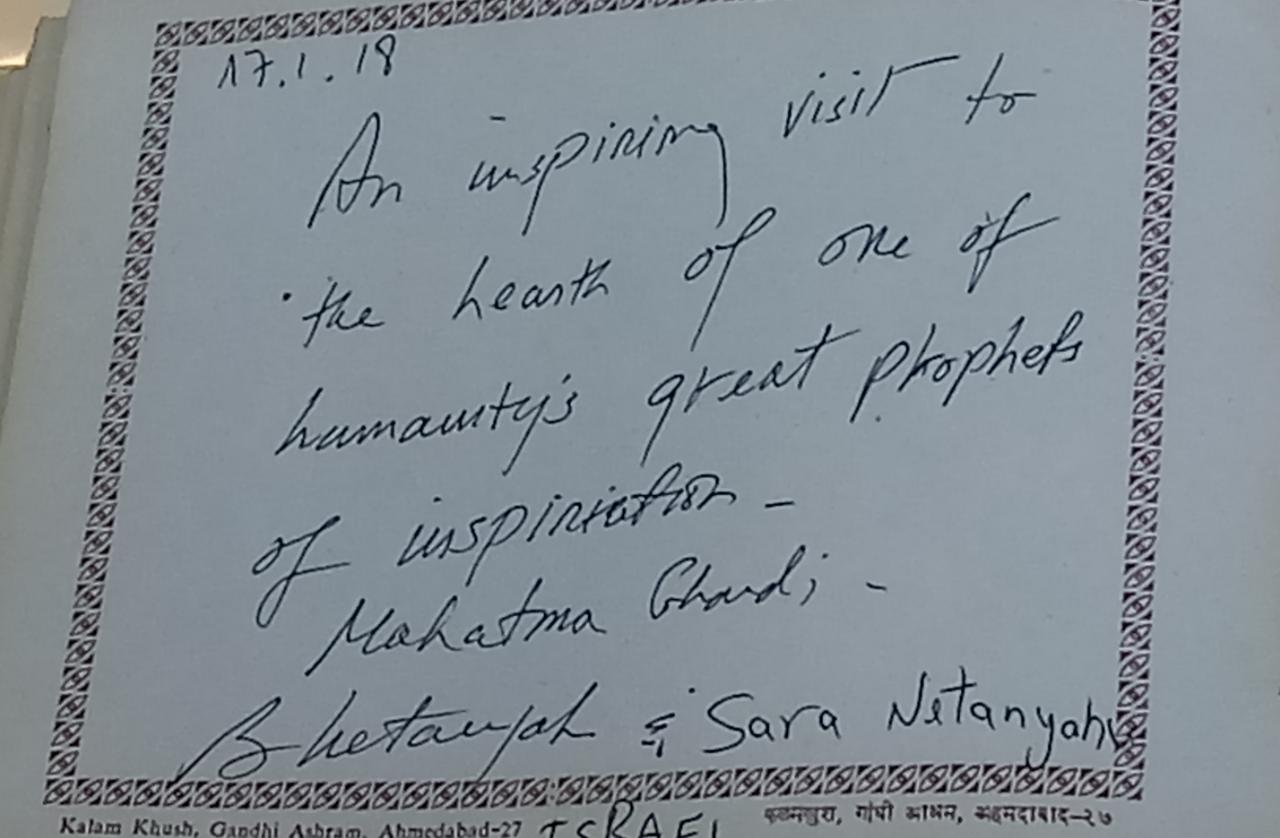 17.1.18
An inspiring visit to
the hearth of one of
humanity's great prophets
of inspiration -
Mahatma Ghandi -
B Netanyah & Sara Netanyahu
Kalam Khush, Gandhi Ashram, Ahmedabad-27
ISRAEL
कलमखुश, गांधी आश्रम, अहमदाबाद-२७